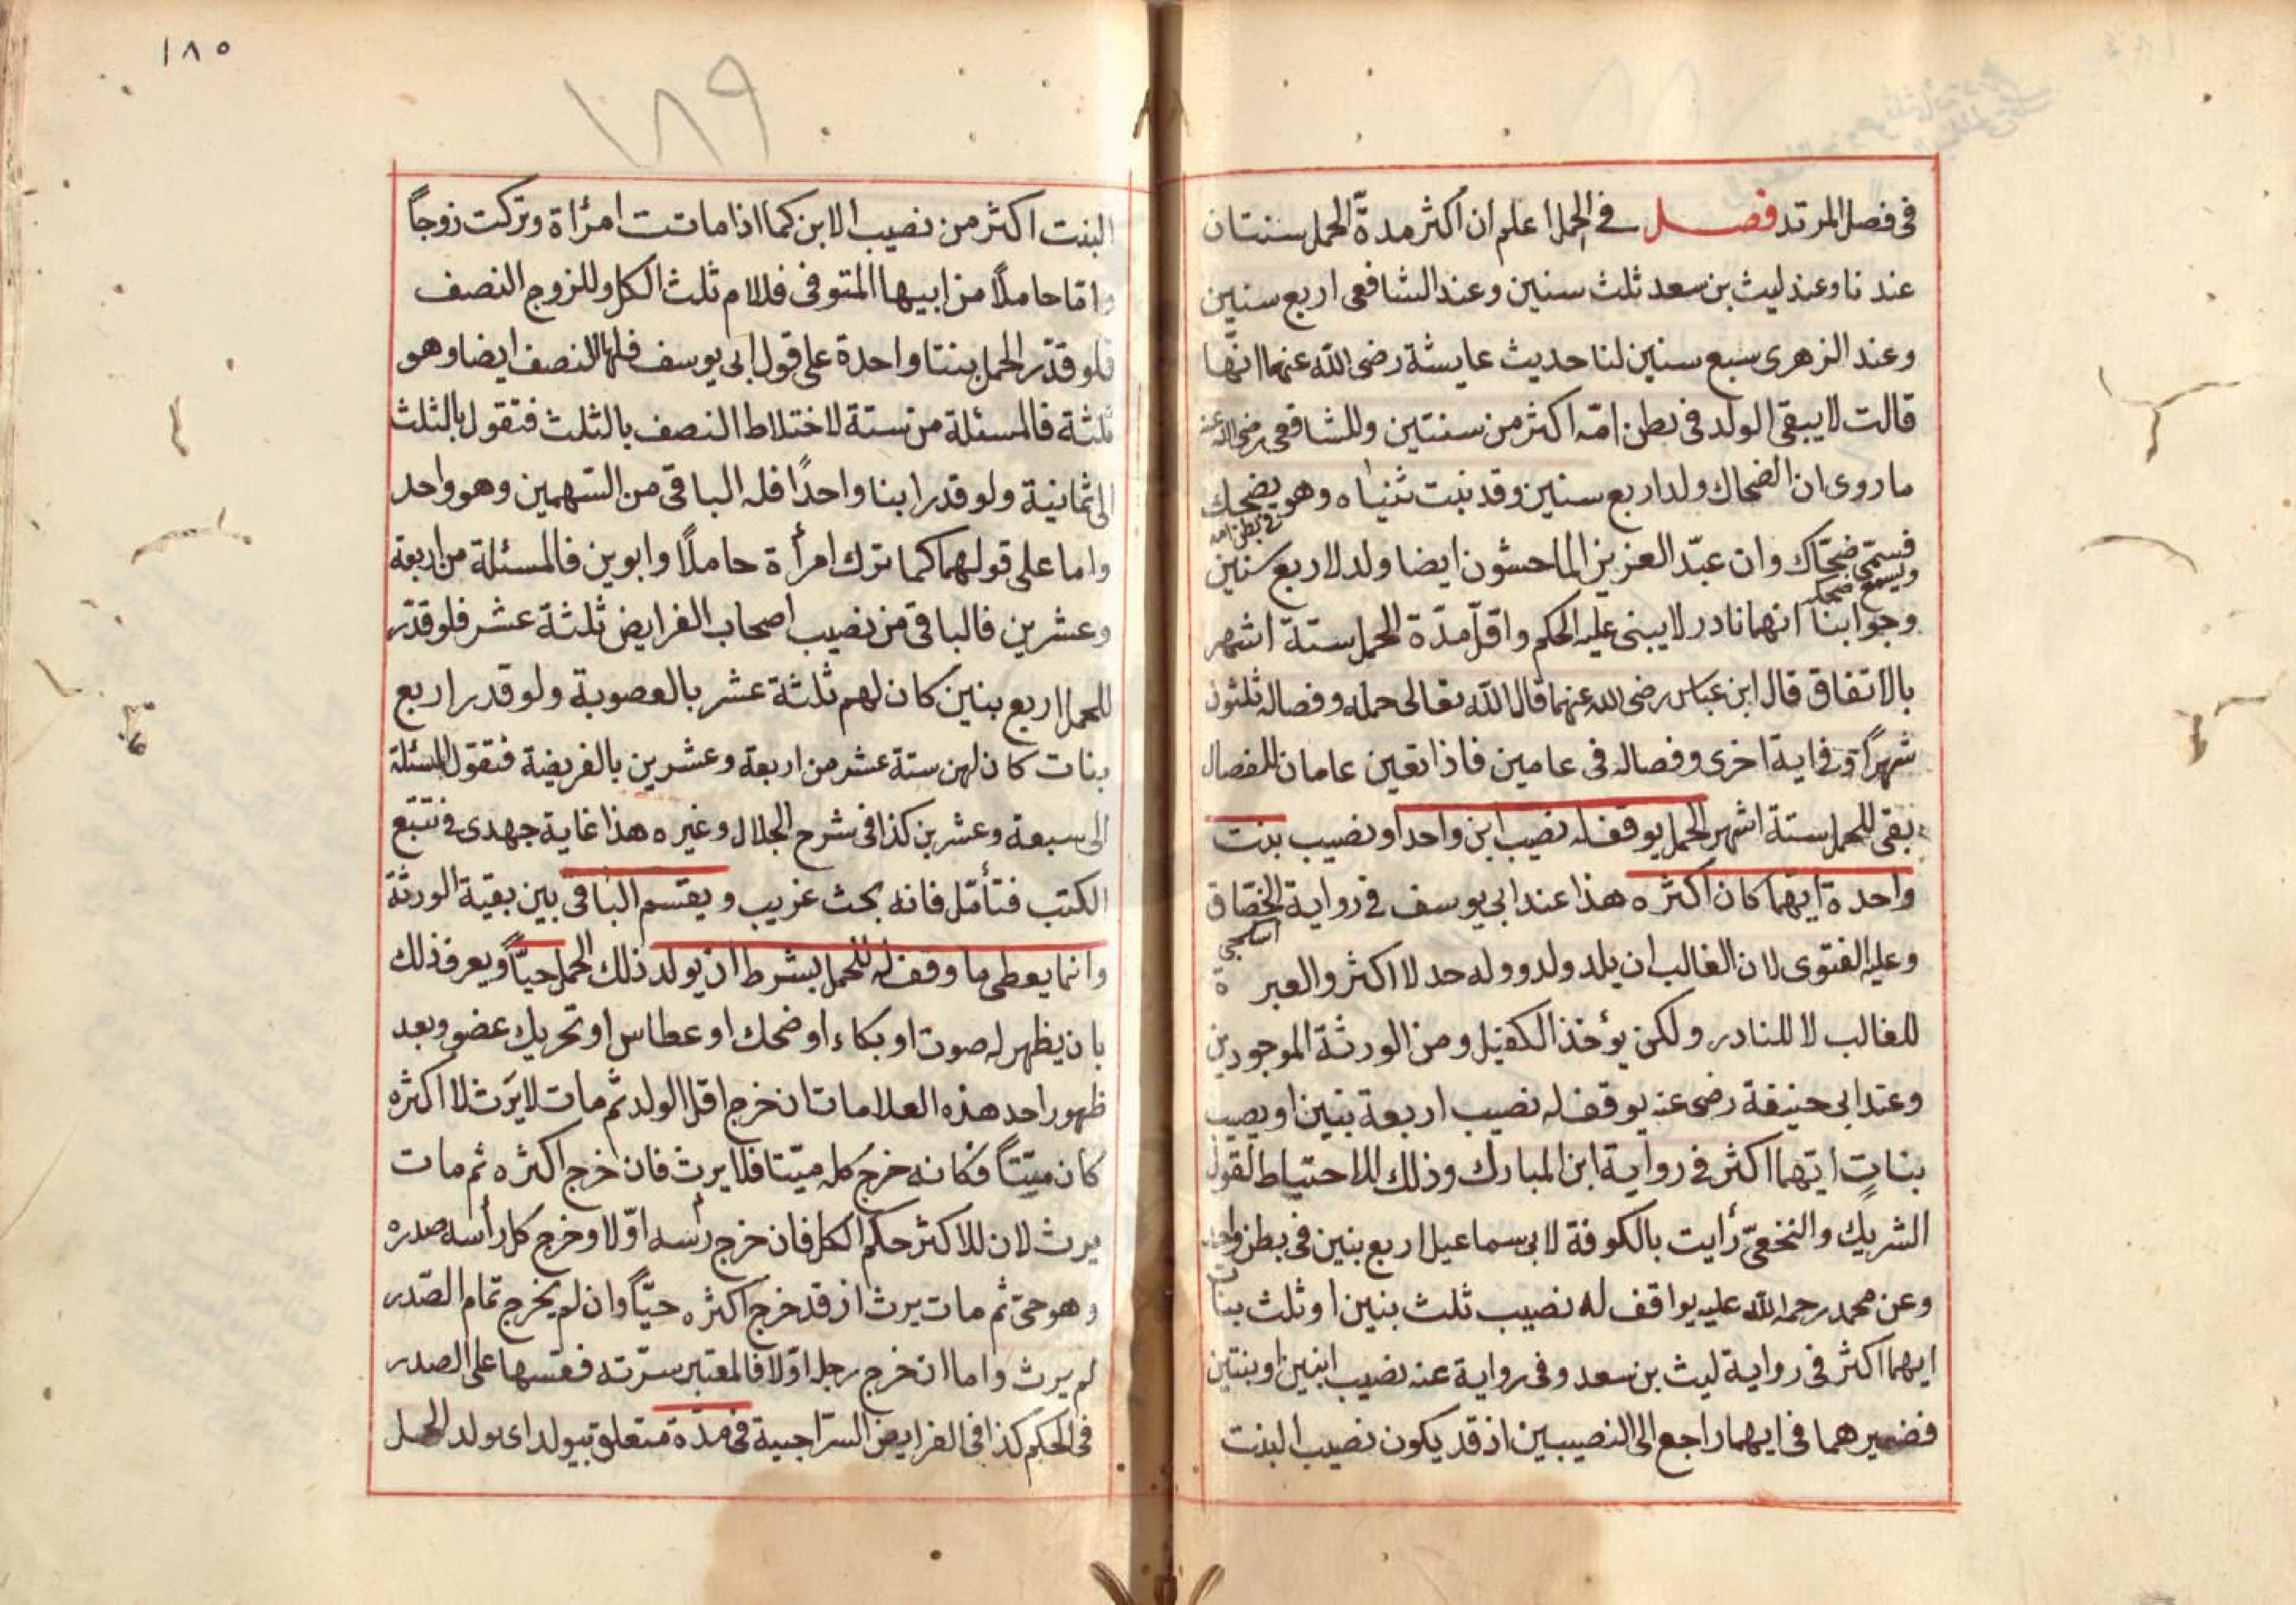 في فصل المرتد فصل في الحمل أعلم ان أكثر مدّة الحمل سنتان
عندنا وعند ليث بن سعد ثلث سنين وعند الشافعى اربع سنين
وعند الزهرى سبع سنين لنا حديث عايشة رضى الله عنهما انّها
قالت لا يبقى الولد فى بطن امّه اكثر من سنتين وللشافعى رضى الله عنه
ما روى ان الضحاك ولد اربع سنين وقد نبت ثنياه وهو يضحك
في بطن امه
فسمّى ضحّاك وان عبد العزيز الماحشون ايضا ولد لاربع سنين
ويسمع ضحكه
وجوابنا انهما نادر لا يبنى عليه الحكم واقلّ مدّة الحمل ستة اشهر
بالاتفاق قال ابن عباس رضى الله عنهما قال الله تعالى حمله وفصاله ثلثون
شهراً وفي اية اخرى وفصاله فى عامين فاذا تعين عامان للفصال
بقى للحمل ستة اشهر الحمل يوقف له نصيب ابن واحد او نصيب بنت
واحدة ايهما كان اكثره هذا عند ابي يوسف في رواية الخصّاف
وعليه الفتوى لان الغالب ان يلد ولد ووله حد لا اكثر والعبرة
للغالب لا للنادر ولكن يؤخذ الكفيل ومن الورثة الموجودين
وعند ابى حنيفة رضى عنه يوقف له نصيب اربعة بنين او نصيب
بناتٍ ايّهما اكثر فى رواية ابن المبارك وذلك للاحتياط لقول
الشريك والنخعىّ رأيت بالكوفة لابى سماعيل اربع بنين فى بطن واحد
وعن محمد رحمه الله عليه يواقف له نصيب ثلث بنين او ثلث بنات
ايهما اكثر فى رواية ليث بن سعد وفى رواية عنه نصيب ابنين او بنتين
فضمير هما فى ايهما راجع الى النصيبين اذ قد يكون نصيب البنت
١٨٥
١٨٩
البنت اكثر من نصيب الابن كما اذا ماتت امرأة وتركت زوجاً
وامّا حاملاً من ابيها المتوفى فللام ثلث الكل وللزوج النصف
فلو قدّر الحمل بنتا واحدة على قول ابى يوسف فلها النصف ايضا وهو
ثلثة فالمسئلة من ستة لاختلاط النصف بالثلث فتقول بالثلث
الى ثمانية ولو قدر ابنا واحدًا فله الباقى من السّهمين وهو واحد
واما على قولهما كما ترك امرأة حاملًا وابوين فالمسئلة من اربعة
وعشرين فالباقى من نصيب اصحاب الفرايض ثلثة عشر فلو قدّر
للحمل اربع بنين كان لهم ثلثة عشر بالعصوبة ولو قدر اربع
بنات كان لهن ستة عشر من اربعة وعشرين بالفريضة فتقول المسئلة
الى سبعة وعشرين كذا فى شرح الجلال وغيره هذا غاية جهدى في تتبع
الكتب فتأمّل فانه بحث غريب ويقسم الباقى بين بقية الورثة
وانما يعطى ما وقف له للحمل بشرط ان يولد ذلك الحمل حيّاً ويعرف ذلك
بان يظهر له صوت او بكاء او ضحك او عطاس او تحريك عضو وبعد
ظهور احد هذه العلامات ان خرج اقل الولد ثم مات لا يَرث لا اكثره
كان ميّتاً فكانه خرج كله ميّتا فلا يرث فان خرج اكثره ثم مات
يرث لان للاكثر حكم الكل فان خرج رأسه اوّلا وخرج كل رأسه صدره
وهو حىّ ثم مات يرث اذ قد خرج اكثره حيّاً وان لم يخرج تمام الصّدر
لم يرث واما ان خرج رجله اوّلا فالمعتبر سرّته فقسها على الصدر
فى الحكم كذا فى الفرايض السّراجية فى مدّة متعلق بيولد اى يولد الحمل